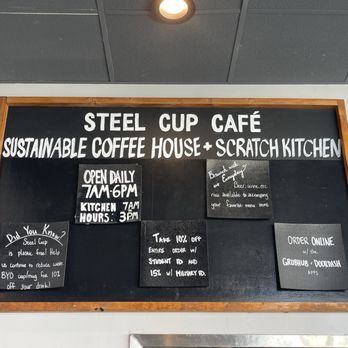 STEEL CUP CAFÉ
SUSTAINABLE COFFEE HOUSE + SCRATCH KITCHEN
OPEN DAILY
7AM-6PM
KITCHEN 7AM
HOURS: 3PM
Brunch with
us Everyday?
Beer, wine etc
now available to accompany
your favorite menu item
Did You Know?
Steel Cup
is plastic free! Help
us continue to reduce waste
BYO cup/mug for 10%
off your drink!
TAKE 10% OFF
ENTIRE ORDER W/
STUDENT ID AND
15% W/ MILITARY ID.
ORDER ONLINE
w/ the
GRUBHUB + DOORDASH
APPS